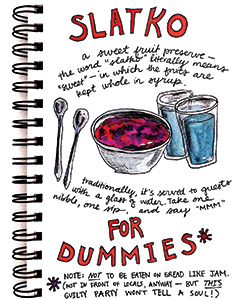 SLATKO
a sweet fruit preserve —
the word "slatko" literally means
"sweet" — in which the fruits are
kept whole in syrup.
traditionally, it's served to guests
with a glass of water. Take one
nibble, one sip, and say "MMM"
FOR
DUMMIES*
* NOTE: NOT TO BE EATEN ON BREAD LIKE JAM.
(NOT IN FRONT OF LOCALS, ANYWAY — BUT THIS
GUILTY PARTY WON'T TELL A SOUL!)